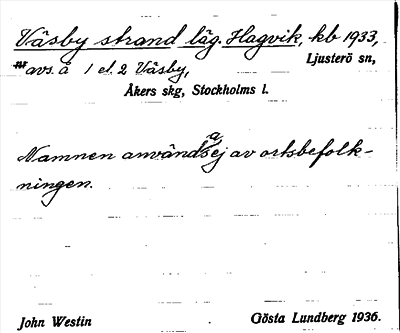 Väsby strand läg. Hagvik, kb 1933,
avs. å 1 el. 2 Väsby, Ljusterö sn,
Åkers skg, Stockholms l.
Namnen användsa ej av ortsbefolk-
ningen.
John Westin Gösta Lundberg 1936.